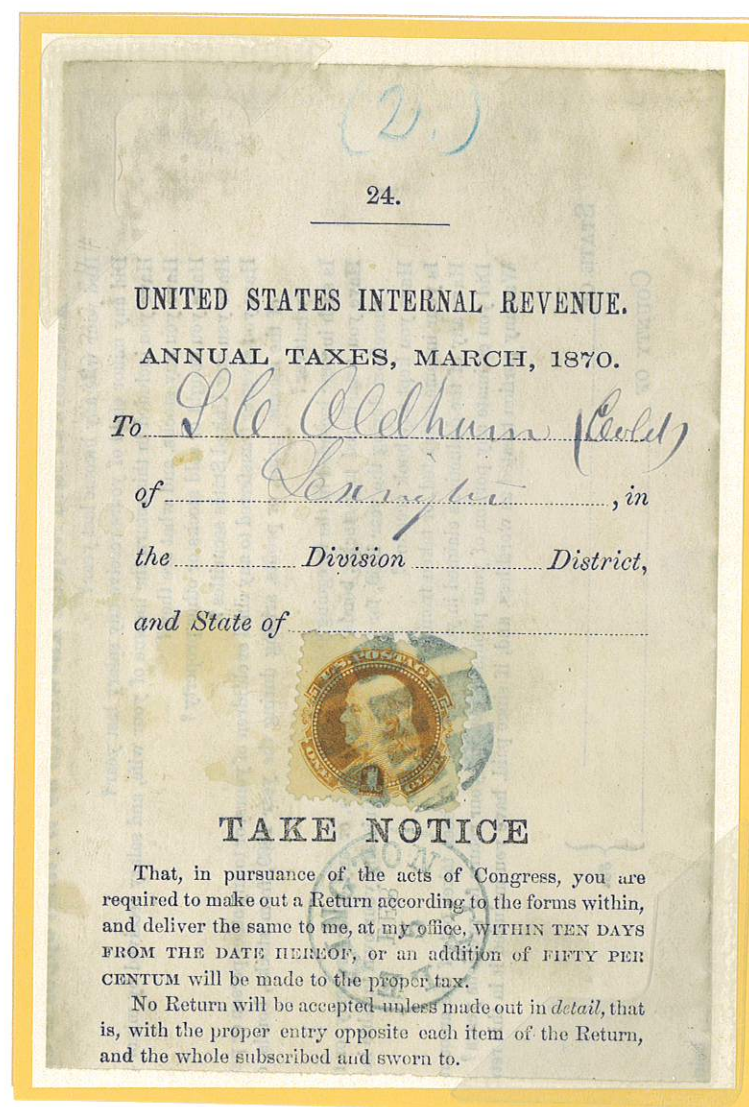 (2.)
24.
UNITED STATES INTERNAL REVENUE.
ANNUAL TAXES, MARCH, 1870.
To L C Oldham (Cold)
of Lexington, in
the Division District,
and State of
U.S. POSTAGE
ONE 1 CENT
TAKE NOTICE
That, in pursuance of the acts of Congress, you are
required to make out a Return according to the forms within,
and deliver the same to me, at my office, WITHIN TEN DAYS
FROM THE DATE HEREOF, or an addition of FIFTY PER
CENTUM will be made to the proper tax.
No Return will be accepted unless made out in detail, that
is, with the proper entry opposite each item of the Return,
and the whole subscribed and sworn to.